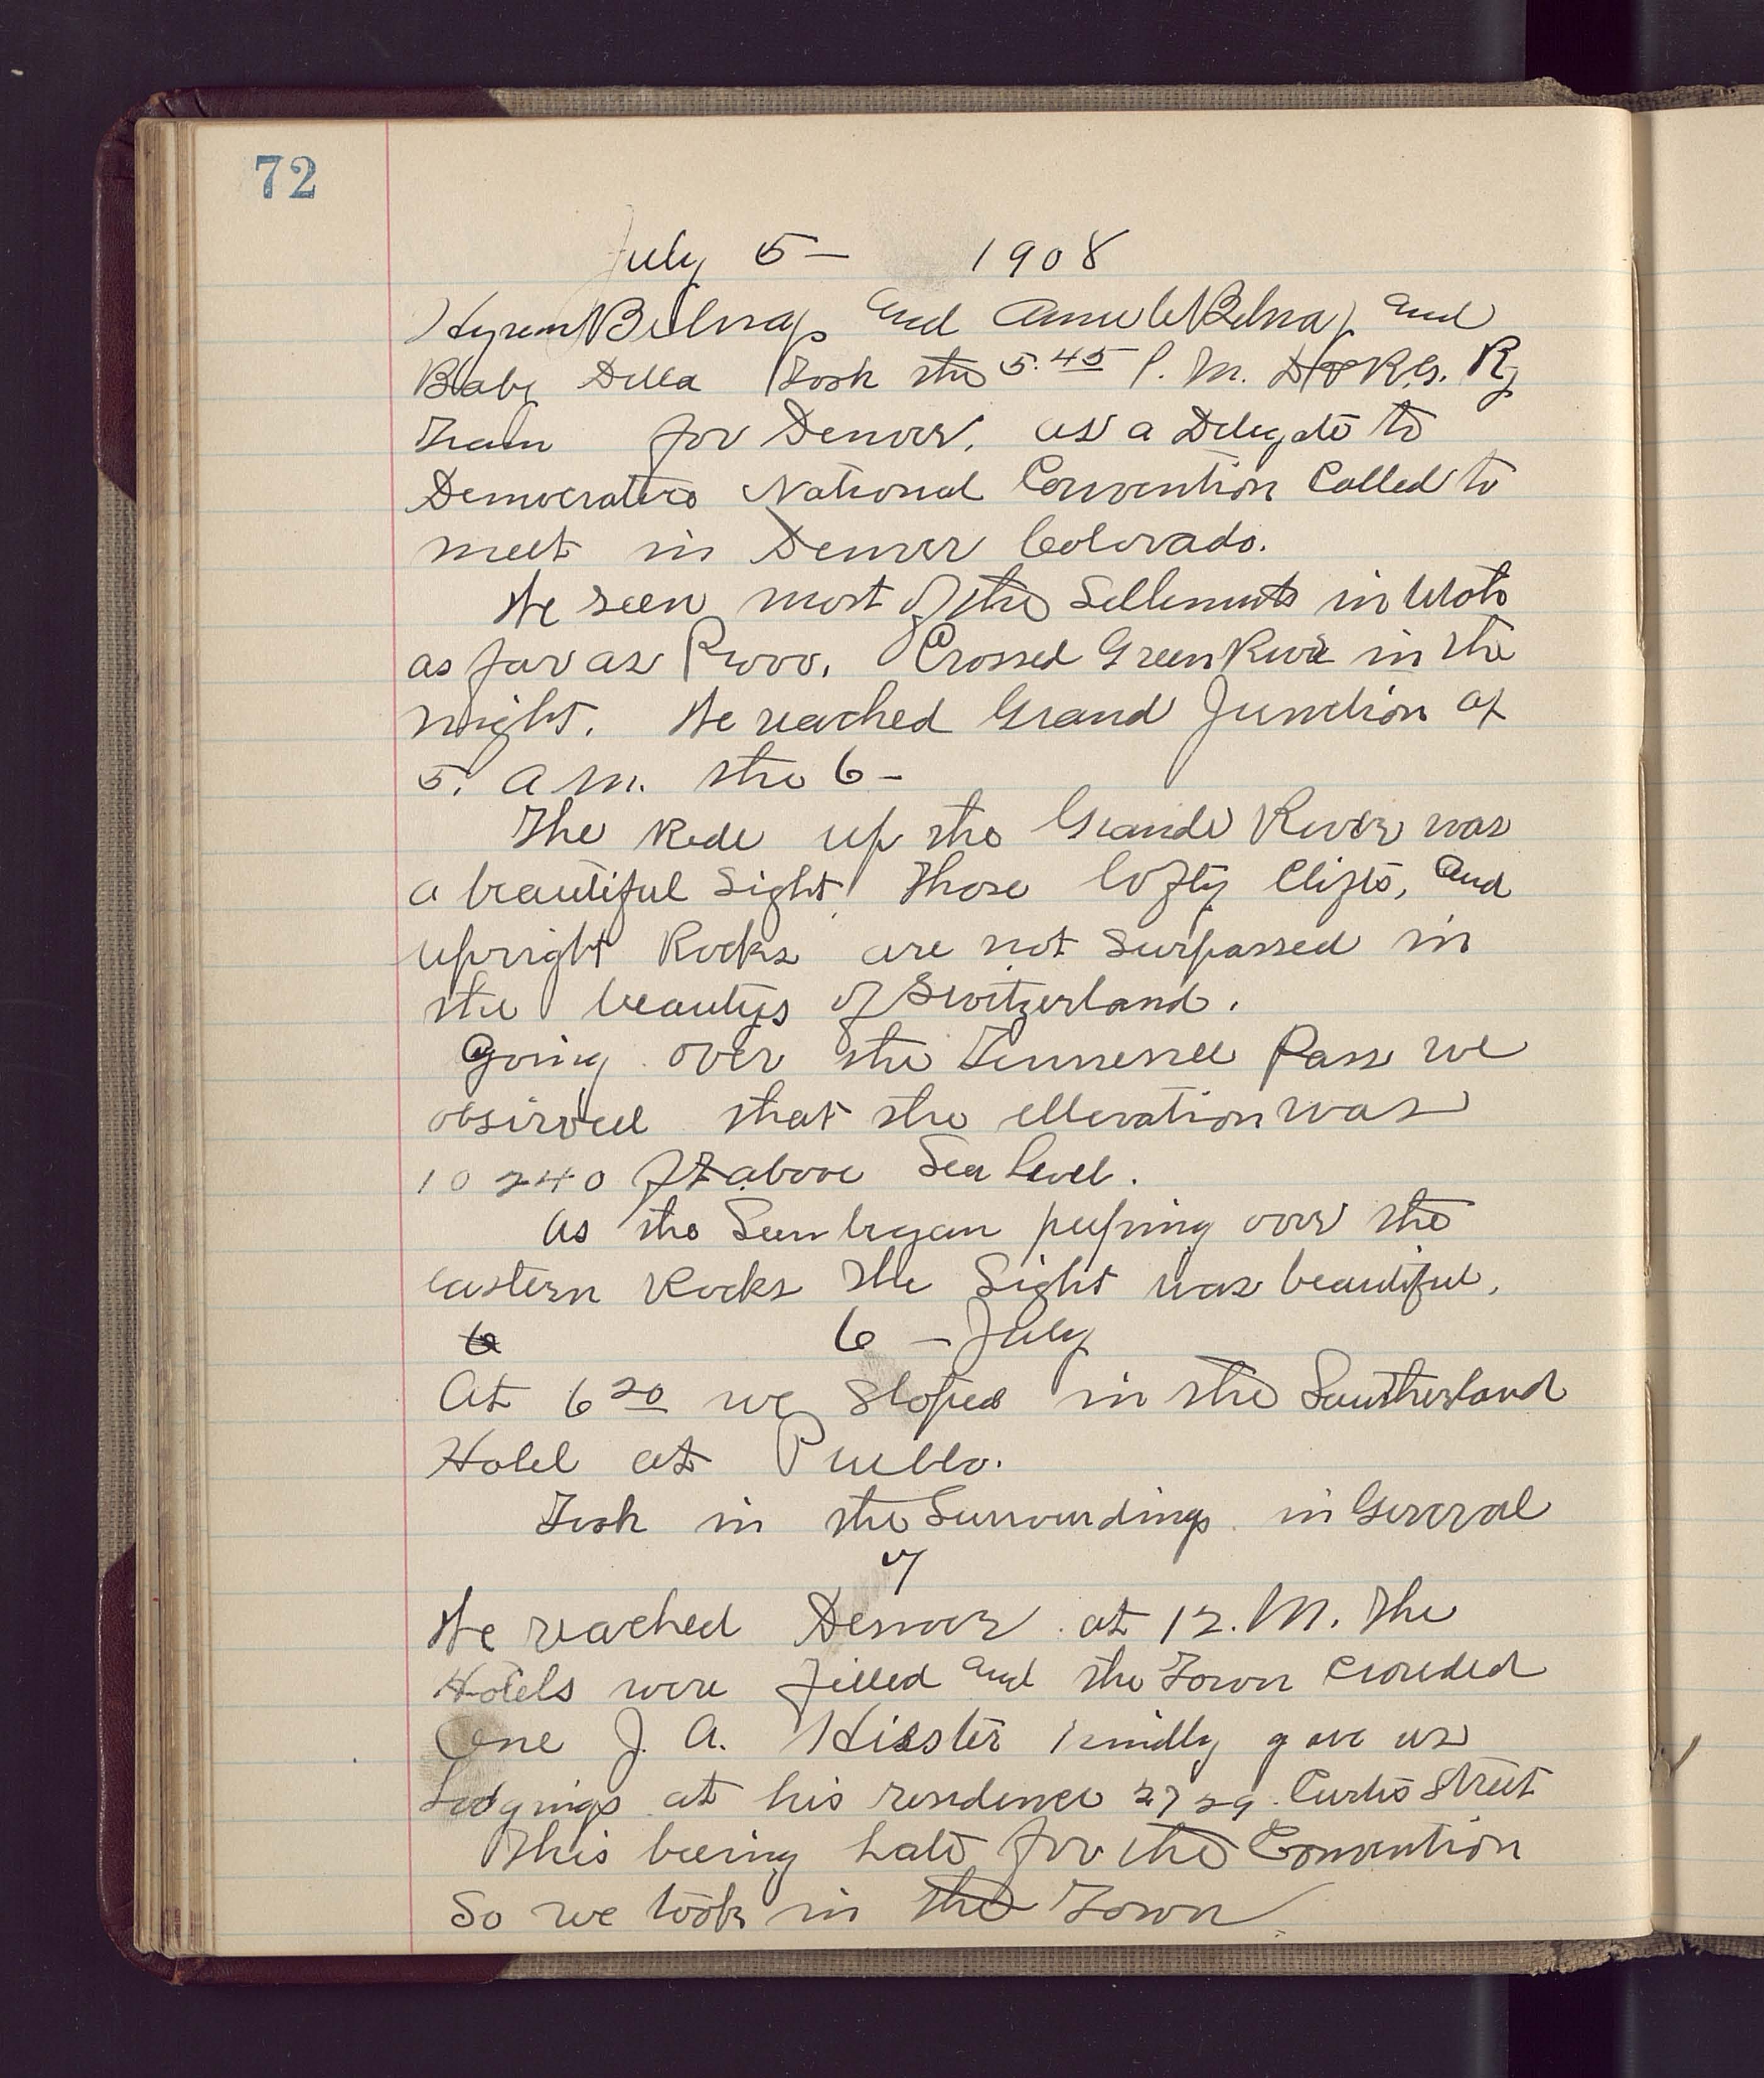 72
July 5 — 1908
Hyrum Belnap and Annie Belnap and
Baby Della Took the 5.45 P. M. D & R.G. Ry
Train for Denver, as a Delegate to
Democratics National Convention Called to
meet in Denver Colorado.
We seen most of the Settlements in Utah
as far as Provo. Crossed Green River in the
night. We reached Grand Junction at
5. A M. the 6 —
The Ride up the Grande River was
a beautiful Sight! Those lofty Clifts, and
upright Rocks are not surpassed in
the beautys of Switzerland.
Going over the Tennessee Pass we
obsirved that the ellevation was
10 240 ft above Sea level.
As the Sun began peeping over the
eastern Rocks the Sight was beautiful.
6 6 — July
At 6 20 we stoped in the Southerland
Hotel at Pueblo.
Took in the Surroundings in General
7
We reached Denver at 12. M. The
Hotels were filled and the Town Crouded
One J. A. Hiester kindly gave us
Lodgings at his residence 2729 Curtis Street
This being late for the Convention
So we took in the Town.